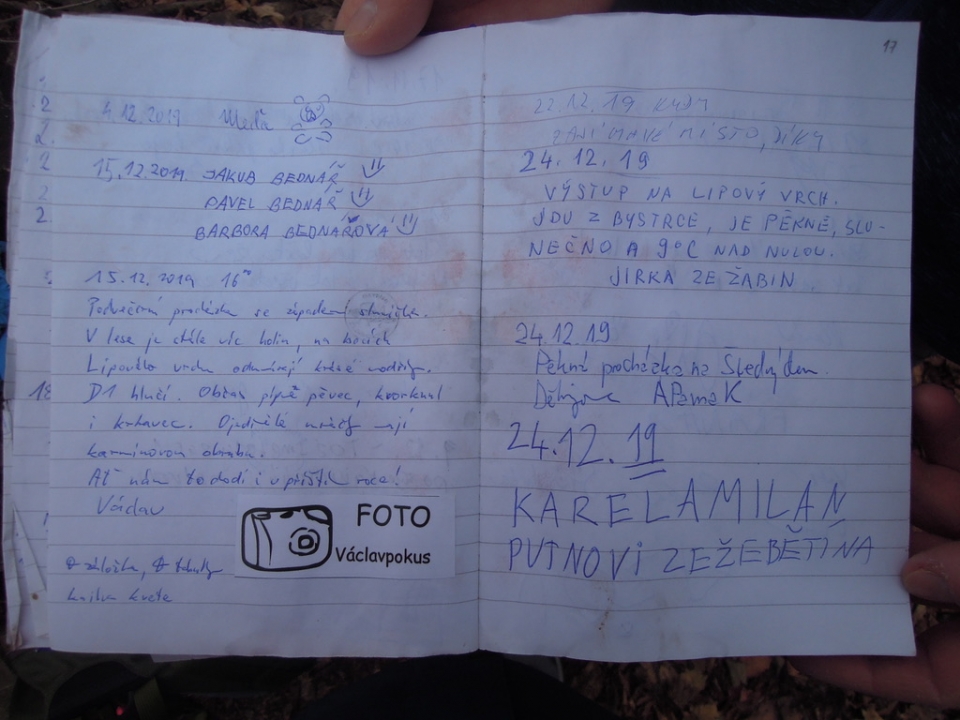 4.12.2019 Meďa
15.12.2019. JAKUB BEDNÁŘ
PAVEL BEDNÁŘ
BARBORA BEDNÁŘOVÁ
15.12.2019 16
Podvečerní procházka se západem sluníčka.
V lese je stále víc holin, na bocích
Lipového vrchu odumírají krásné modříny.
D1 hlučí. Občas pípne pěvec, kvorknul
i krkavec. Ojedinělé mráčky mají
karmínovou obrubu.
Ať nám to dodí i v příštím roce!
Václav
FOTO
Václavpokus
záložka,
kniha kvete
17
22.12.19
ZAJÍMAVÉ MÍSTO, DÍKY
24.12.19
VÝSTUP NA LIPOVÝ VRCH.
JDU Z BYSTRCE, JE PĚKNĚ, SLU-
NEČNO A 9°C NAD NULOU.
JIRKA ZE ŽABIN
24.12.19
Pěkná procházka na Štědrý den.
Děkujeme
24.12.19
KAREL A MILAN
PUTNOVI ZE ŽEBĚTÍNA
2
2
2
2
2
18